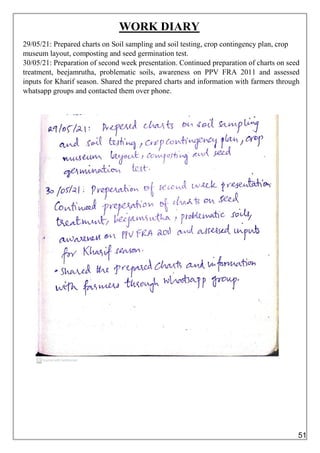 WORK DIARY
29/05/21: Prepared charts on Soil sampling and soil testing, crop contingency plan, crop
museum layout, composting and seed germination test.
30/05/21: Preparation of second week presentation. Continued preparation of charts on seed
treatment, beejamrutha, problematic soils, awareness on PPV FRA 2011 and assessed
inputs for Kharif season. Shared the prepared charts and information with farmers through
whatsapp groups and contacted them over phone.
29/05/21: Prepered charts on soil sampling
and soil testing, crop contingency plan, crop
museum layout, composting and seed
germination test.
30/05/21: Preperation of second week presentation
Continued preperation of charts on seed
treatment, beejamrutha, problematic soils,
awareness on PPV FRA 2011 and assessed inputs
for Kharif season.
• Shared the prepared charts and information
with farmers through whatsapp group.
51